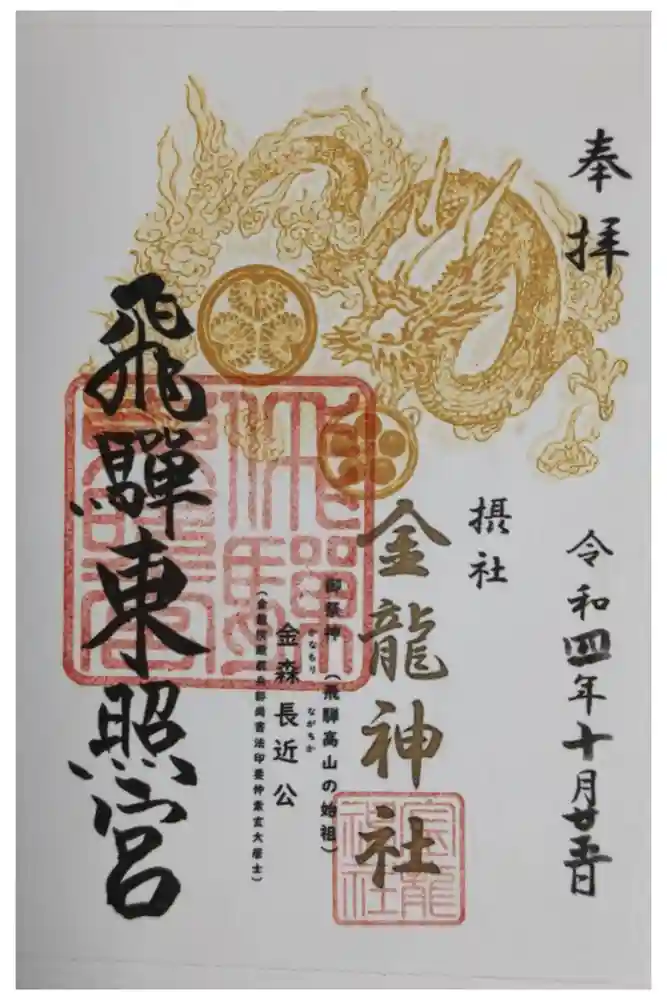 奉拝
令和四年十月廿五日
摂社
金龍神社
御祭神（飛騨高山の始祖）
かなもり ながちか
金森長近公
（金龍院殿前兵部尚書法印要仲素玄大居士）
飛驒東照宮
金龍神社